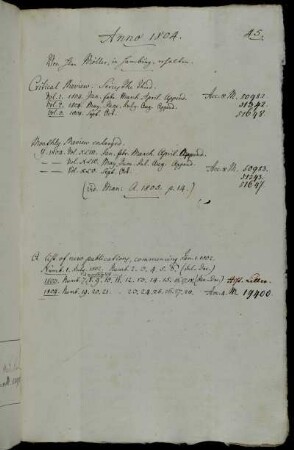 Anno 1804. 45.
Von Hrn Möller, in Hamburg, erhalten.
Critical Review: Series the third
Vol. 1. 1804. Jan. Febr. March. April. Append. Acc. M. 50952.
Vol. 2. 1804. May. June. July. Aug. Append. 51242.
Vol. 3. 1804. Sept. Oct. 51648.
Monthly Review enlarged.
1804. Vol. XLIII. Jan. Febr. March. April. Append.
— — Vol. XLIV. May. June. Jul. Aug. Append. Acc. M. 50953.
— — Vol. XLV. Sept. Oct. 51243.
51647.
(vid. Man: A. 1803. p. 14.)
A list of new publications, commencing Jan. 1. 1802.
Numb. 1. 2. 4. 5. 6. (Jul. Dec.)
1803. Numb. 7. 8. 9. 10. 11. 12. 13. 14. 15. 16. 17. 18. (Jan-Dec.) Hist. Litter.
1804. Numb. 19. 20. 21. 22. 24. 26. 27. 28. Acc. M. 19400.